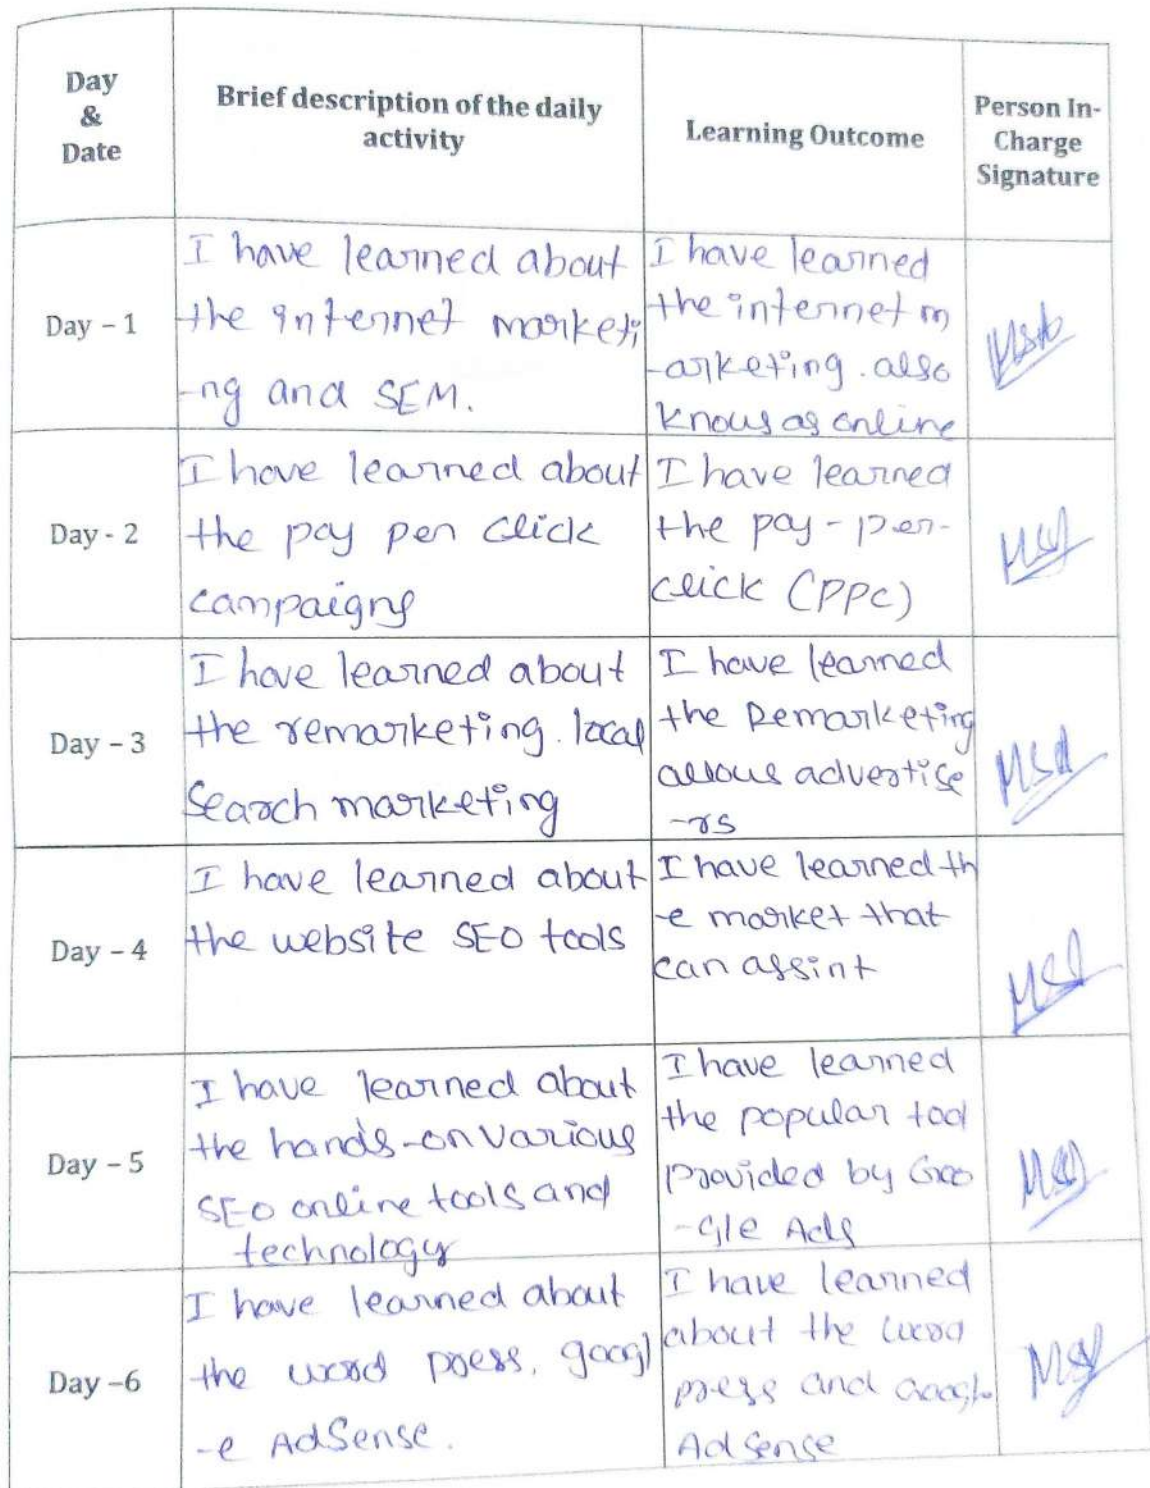 Day
&
Date
Brief description of the daily
activity
Learning Outcome
Person In-
Charge
Signature
Day – 1
I have learned about
the internet marketi
-ng and SEM.
I have learned
the internet m
-arketing. also
knows as online
Day - 2
I have learned about
the pay per click
campaigns
I have learned
the pay - per-
click (PPC)
Day – 3
I have learned about
the remarketing. local
Search marketing
I have learned
the Remarketing
allows advertise
-rs
Day – 4
I have learned about
the website SEO tools
I have learned th
-e market that
can assint
Day – 5
I have learned about
the hands-on various
SEO online tools and
technology
I have learned
the popular tool
provided by Goo
-gle Ads
Day –6
I have learned about
the word press, googl
-e AdSense.
I have learned
about the word
press and Google
AdSense